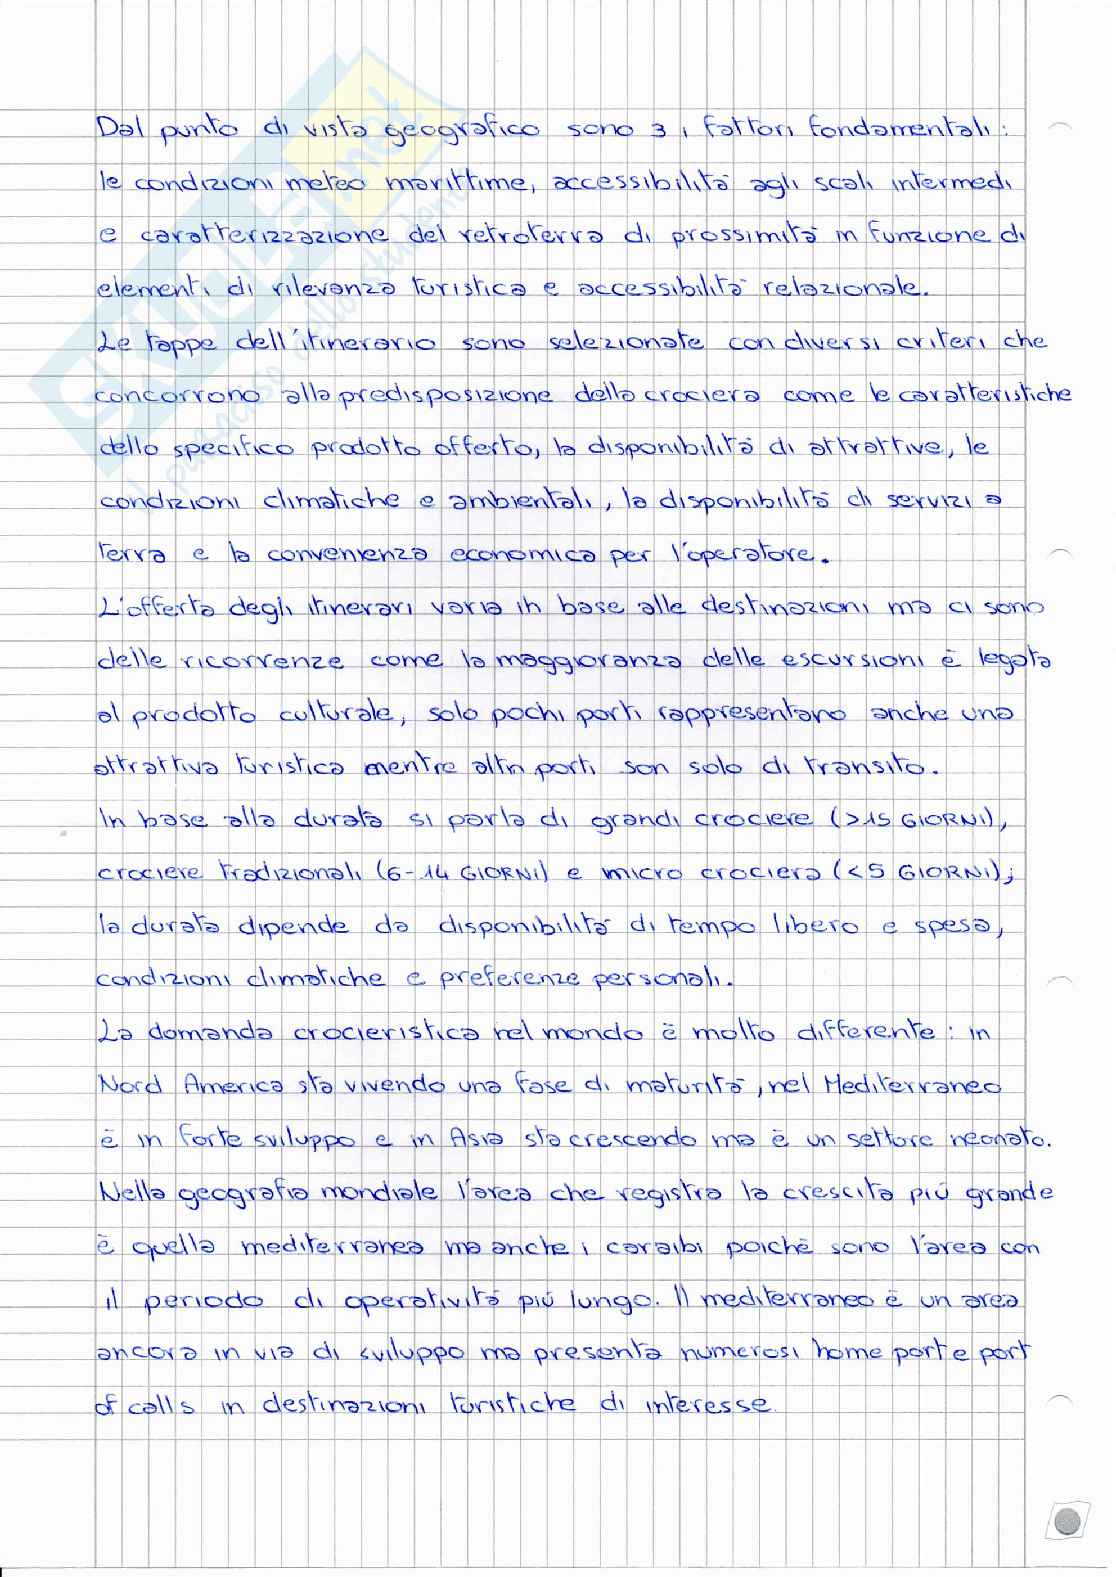 Dal punto di vista geografico sono 3 i fattori fondamentali:
le condizioni meteo marittime, accessibilità agli scali intermedi
e caratterizzazione del retroterra di prossimità in funzione di
elementi di rilevanza turistica e accessibilità relazionale.
Le tappe dell'itinerario sono selezionate con diversi criteri che
concorrono alla predisposizione della crociera come le caratteristiche
dello specifico prodotto offerto, la disponibilità di attrattive, le
condizioni climatiche e ambientali, la disponibilità di servizi a
terra e la convenienza economica per l'operatore.
L'offerta degli itinerari varia in base alle destinazioni ma ci sono
delle ricorrenze come la maggioranza delle escursioni è legata
al prodotto culturale, solo pochi porti rappresentano anche una
attrattiva turistica mentre altri porti son solo di transito.
In base alla durata si parla di grandi crociere (>15 GIORNI),
crociere tradizionali (6-14 GIORNI) e micro crociera (<5 GIORNI);
la durata dipende da disponibilità di tempo libero e spesa,
condizioni climatiche e preferenze personali.
La domanda crocieristica nel mondo è molto differente: in
Nord America sta vivendo una fase di maturità, nel Mediterraneo
è in forte sviluppo e in Asia sta crescendo ma è un settore neonato.
Nella geografia mondiale l'area che registra la crescita più grande
è quella mediterranea ma anche i caraibi poichè sono l'area con
il periodo di operatività più lungo. Il mediterraneo è un area
ancora in via di sviluppo ma presenta numerosi home port e port
of calls in destinazioni turistiche di interesse.